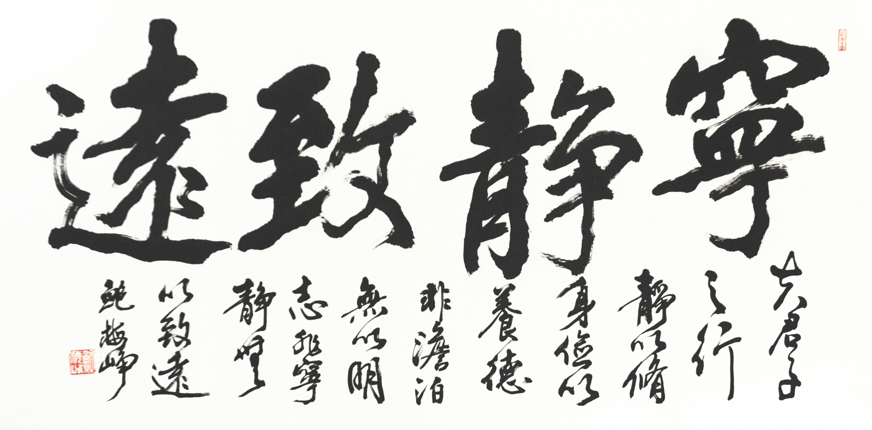 寧靜致遠
夫君子
之行
靜以脩
身儉以
養德
非澹泊
無以明
志非寧
靜無
以致遠
鮑梅峥